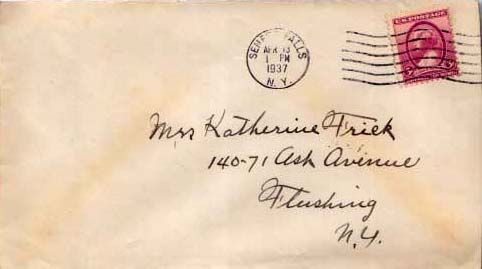 SENECA FALLS
APR 13
1 PM
1937
N.Y.
U.S. POSTAGE
3¢ 3¢
Miss Katherine Frick
140-71 Ash Avenue
Flushing
N.Y.